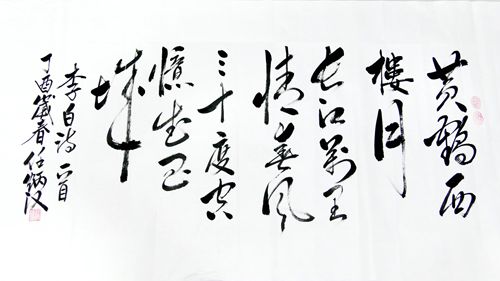 黄鹤西
樓月
长江萬里
情春风
三十度空
憶武昌
城
李白诗一首
丁酉歲春任炳